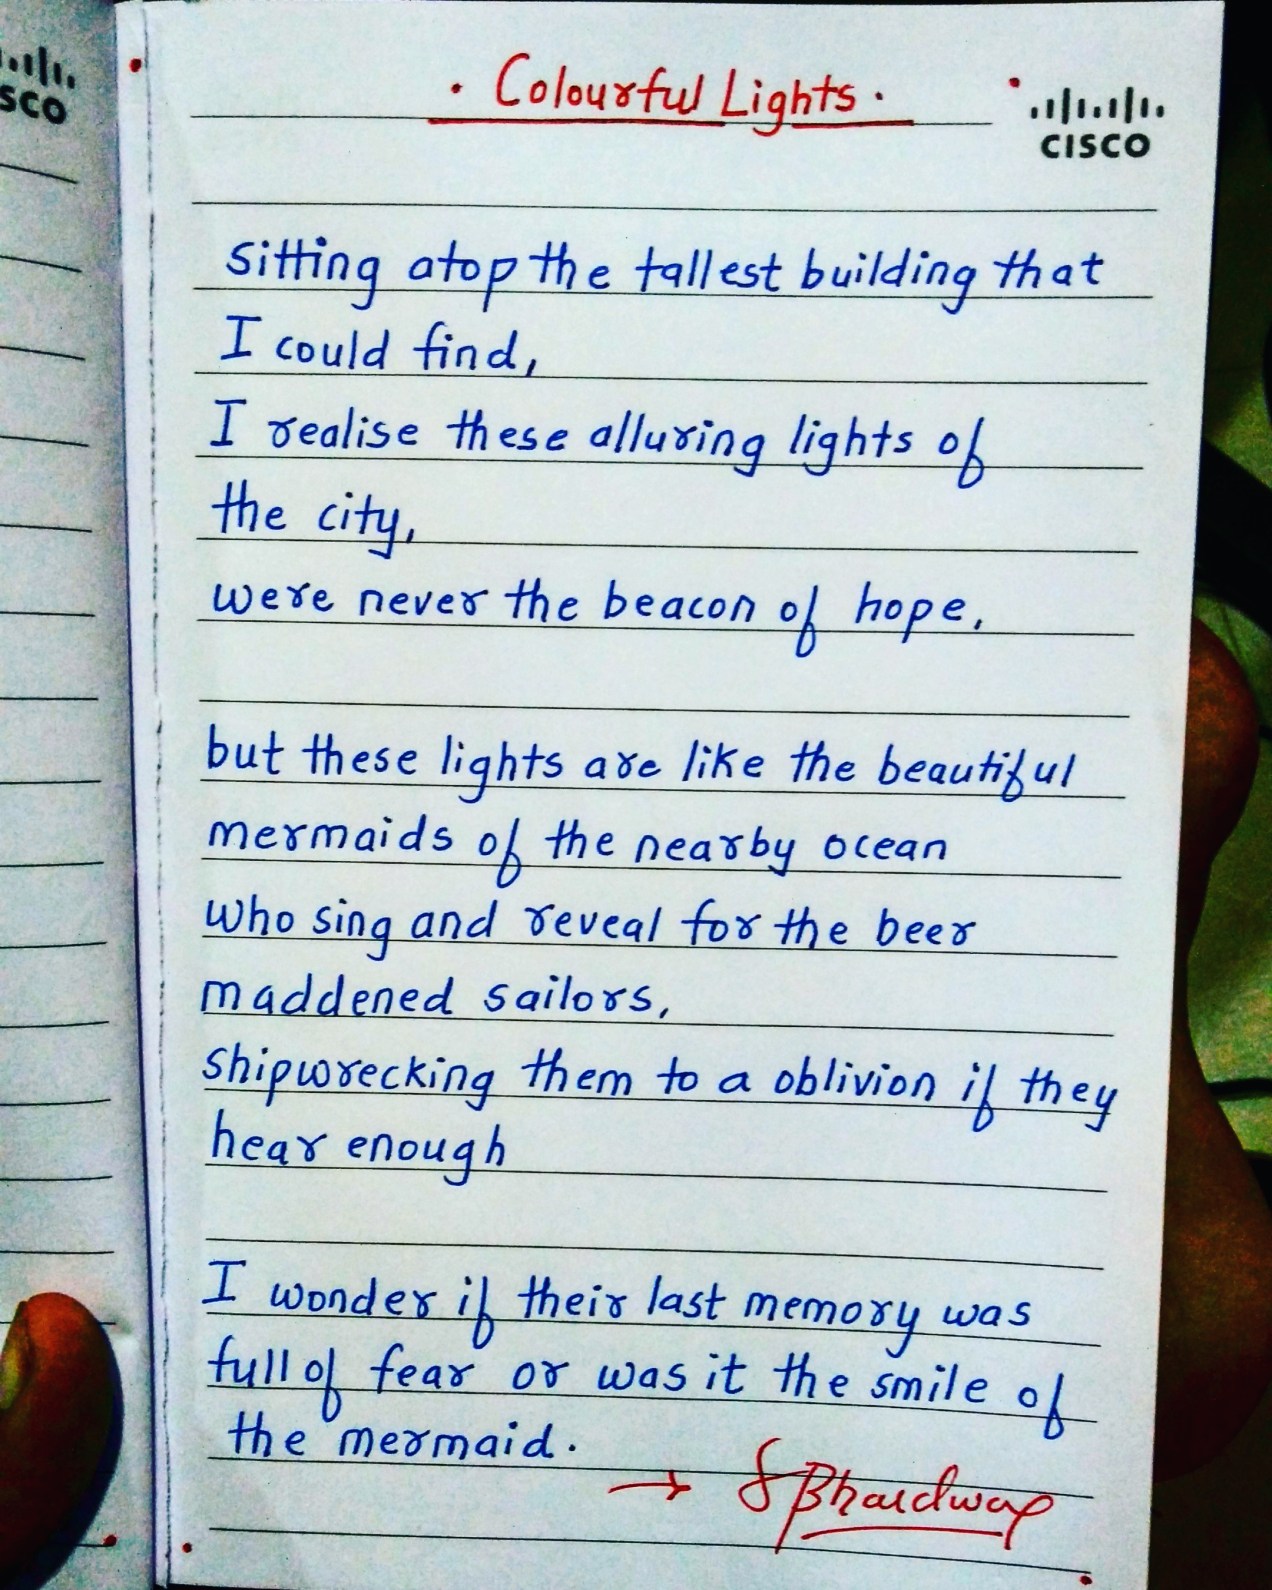 SCO
· Colourful Lights ·
CISCO
sitting atop the tallest building that
I could find,
I realise these alluring lights of
the city,
were never the beacon of hope,
but these lights are like the beautiful
mermaids of the nearby ocean
who sing and reveal for the beer
maddened sailors,
shipwrecking them to a oblivion if they
hear enough
I wonder if their last memory was
full of fear or was it the smile of
the mermaid.
→ SBhardwaj